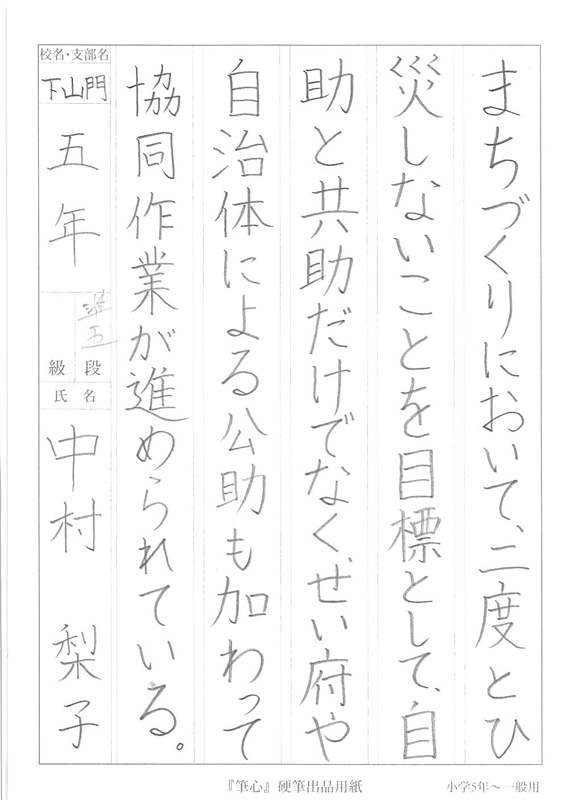 まちづくりにおいて、二度とひ
災しないことを目標として、自
助と共助だけでなく、せい府や
自治体による公助も加わって
協同作業が進められている。
校名・支部名
下山門
五年
準五
級 段
氏 名
中村 梨子
『筆心』硬筆出品用紙
小学5年～一般用